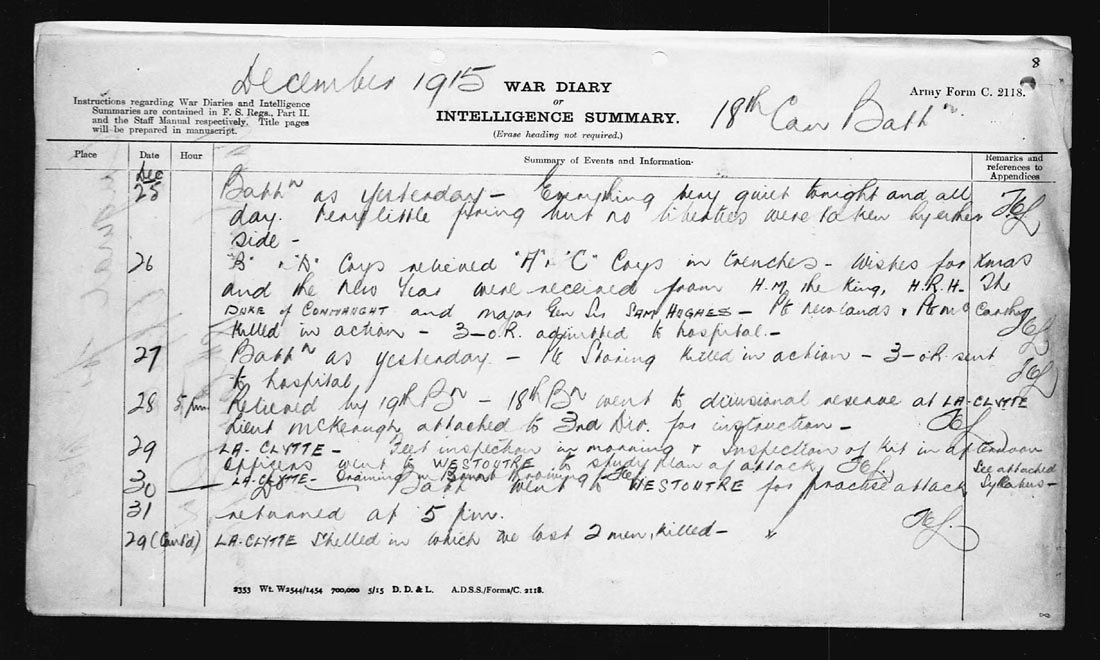 8
December 1915
WAR DIARY
or
INTELLIGENCE SUMMARY.
(Erase heading not required.)
Instructions regarding War Diaries and Intelligence
Summaries are contained in F. S. Regs., Part II.
and the Staff Manual respectively. Title pages
will be prepared in manuscript.
18th Can Battn
Army Form C. 2118.
Place Date Hour Summary of Events and Information. Remarks and references to Appendices
Dec
25 Battn as yesterday - Everything very quiet tonight and all
day. Very little firing but no liberties were taken by either
side -
26 "B" & "D" Coys relieved "A" & "C" Coys in trenches - Wishes for Xmas
and the New Year were received from H.M. the King, H.R.H. The
DUKE of CONNAUGHT and Major Gen Sir SAM HUGHES - Pte Newlands & Pte McCarthy
killed in action - 3-o.R. admitted to hospital. -
27 Battn as yesterday. - Pte Storing killed in action - 3-o.R. sent
to hospital
28 5 pm Relieved by 19th Bn - 18th Bn went to divisional reserve at LA-CLYTTE
Lieut McKeough attached to 3rd Div. for instruction -
29 LA-CLYTTE - Feet inspection in morning & Inspection of Kit in afternoon
Officers went to WESTOUTRE to study plan of attack
30 LA-CLYTTE - Training in See attached Syllabus -
31 Battn went to WESTOUTRE for practise attack
returned at 5 p.m.
29 (Cont'd) LA-CLYTTE Shelled in which we lost 2 men, killed -
2353 Wt. W2544/1454 700,000 5/15 D. D. & L. A.D.S.S./Forms/C. 2118.
8